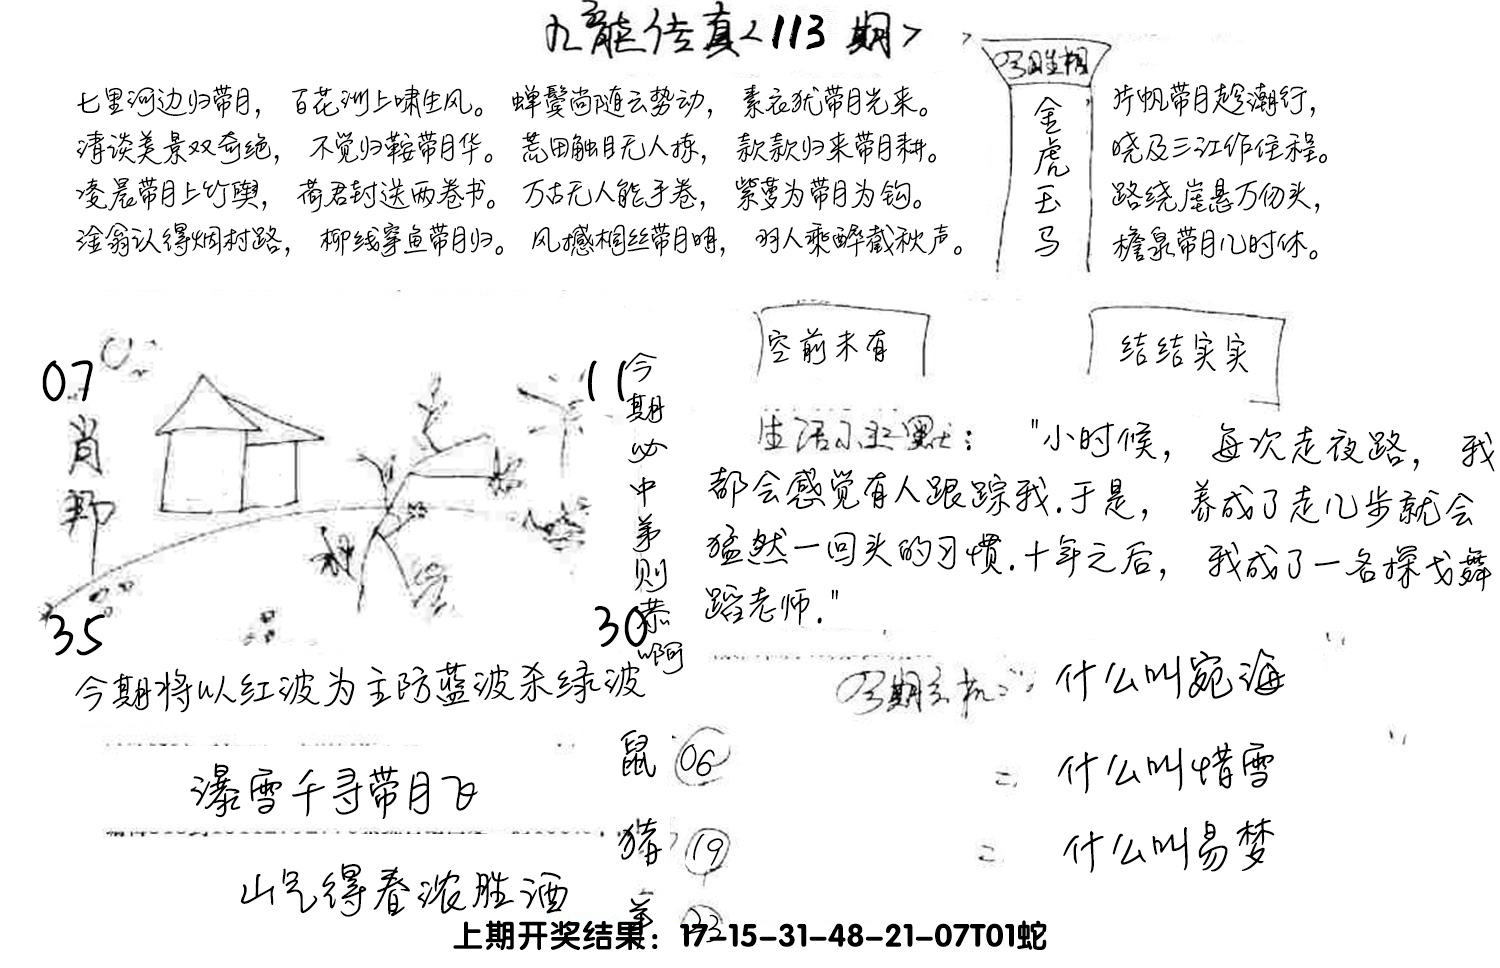 九龍传真<113期>
七里河边归带月，百花洲上啸生风。蝉鬓尚随云势动，素衣犹带月光来。
清谈美景双奇绝，不觉归鞍带月华。荒田触目无人拣，款款归来带月耕。
凌晨带月上竹舆，荷君封送两卷书。万古无人能手卷，紫萝为带月为钩。
淦翁认得烟村路，柳线穿鱼带月归。风撼桐丝带月明，羽人乘醉截秋声。
今期生相
金虎玉马
片帆带月趁潮行，
晓及三江作住程。
路绕崖悬万仞头，
檐泉带月几时休。
空前未有
结结实实
07
11
肖
35
30
今期必中第则恭啊
生活小幽默："小时候，每次走夜路，我
都会感觉有人跟踪我.于是，养成了走几步就会
猛然一回头的习惯.十年之后，我成了一名探戈舞
蹈老师."
今期将以红波为主防蓝波杀绿波
瀑雪千寻带月飞
山气得春浓胜酒
鼠 06
猪 19
羊
今期玄机:
什么叫宛海
什么叫惜雪
什么叫易梦
上期开奖结果：17-15-31-48-21-07T01蛇